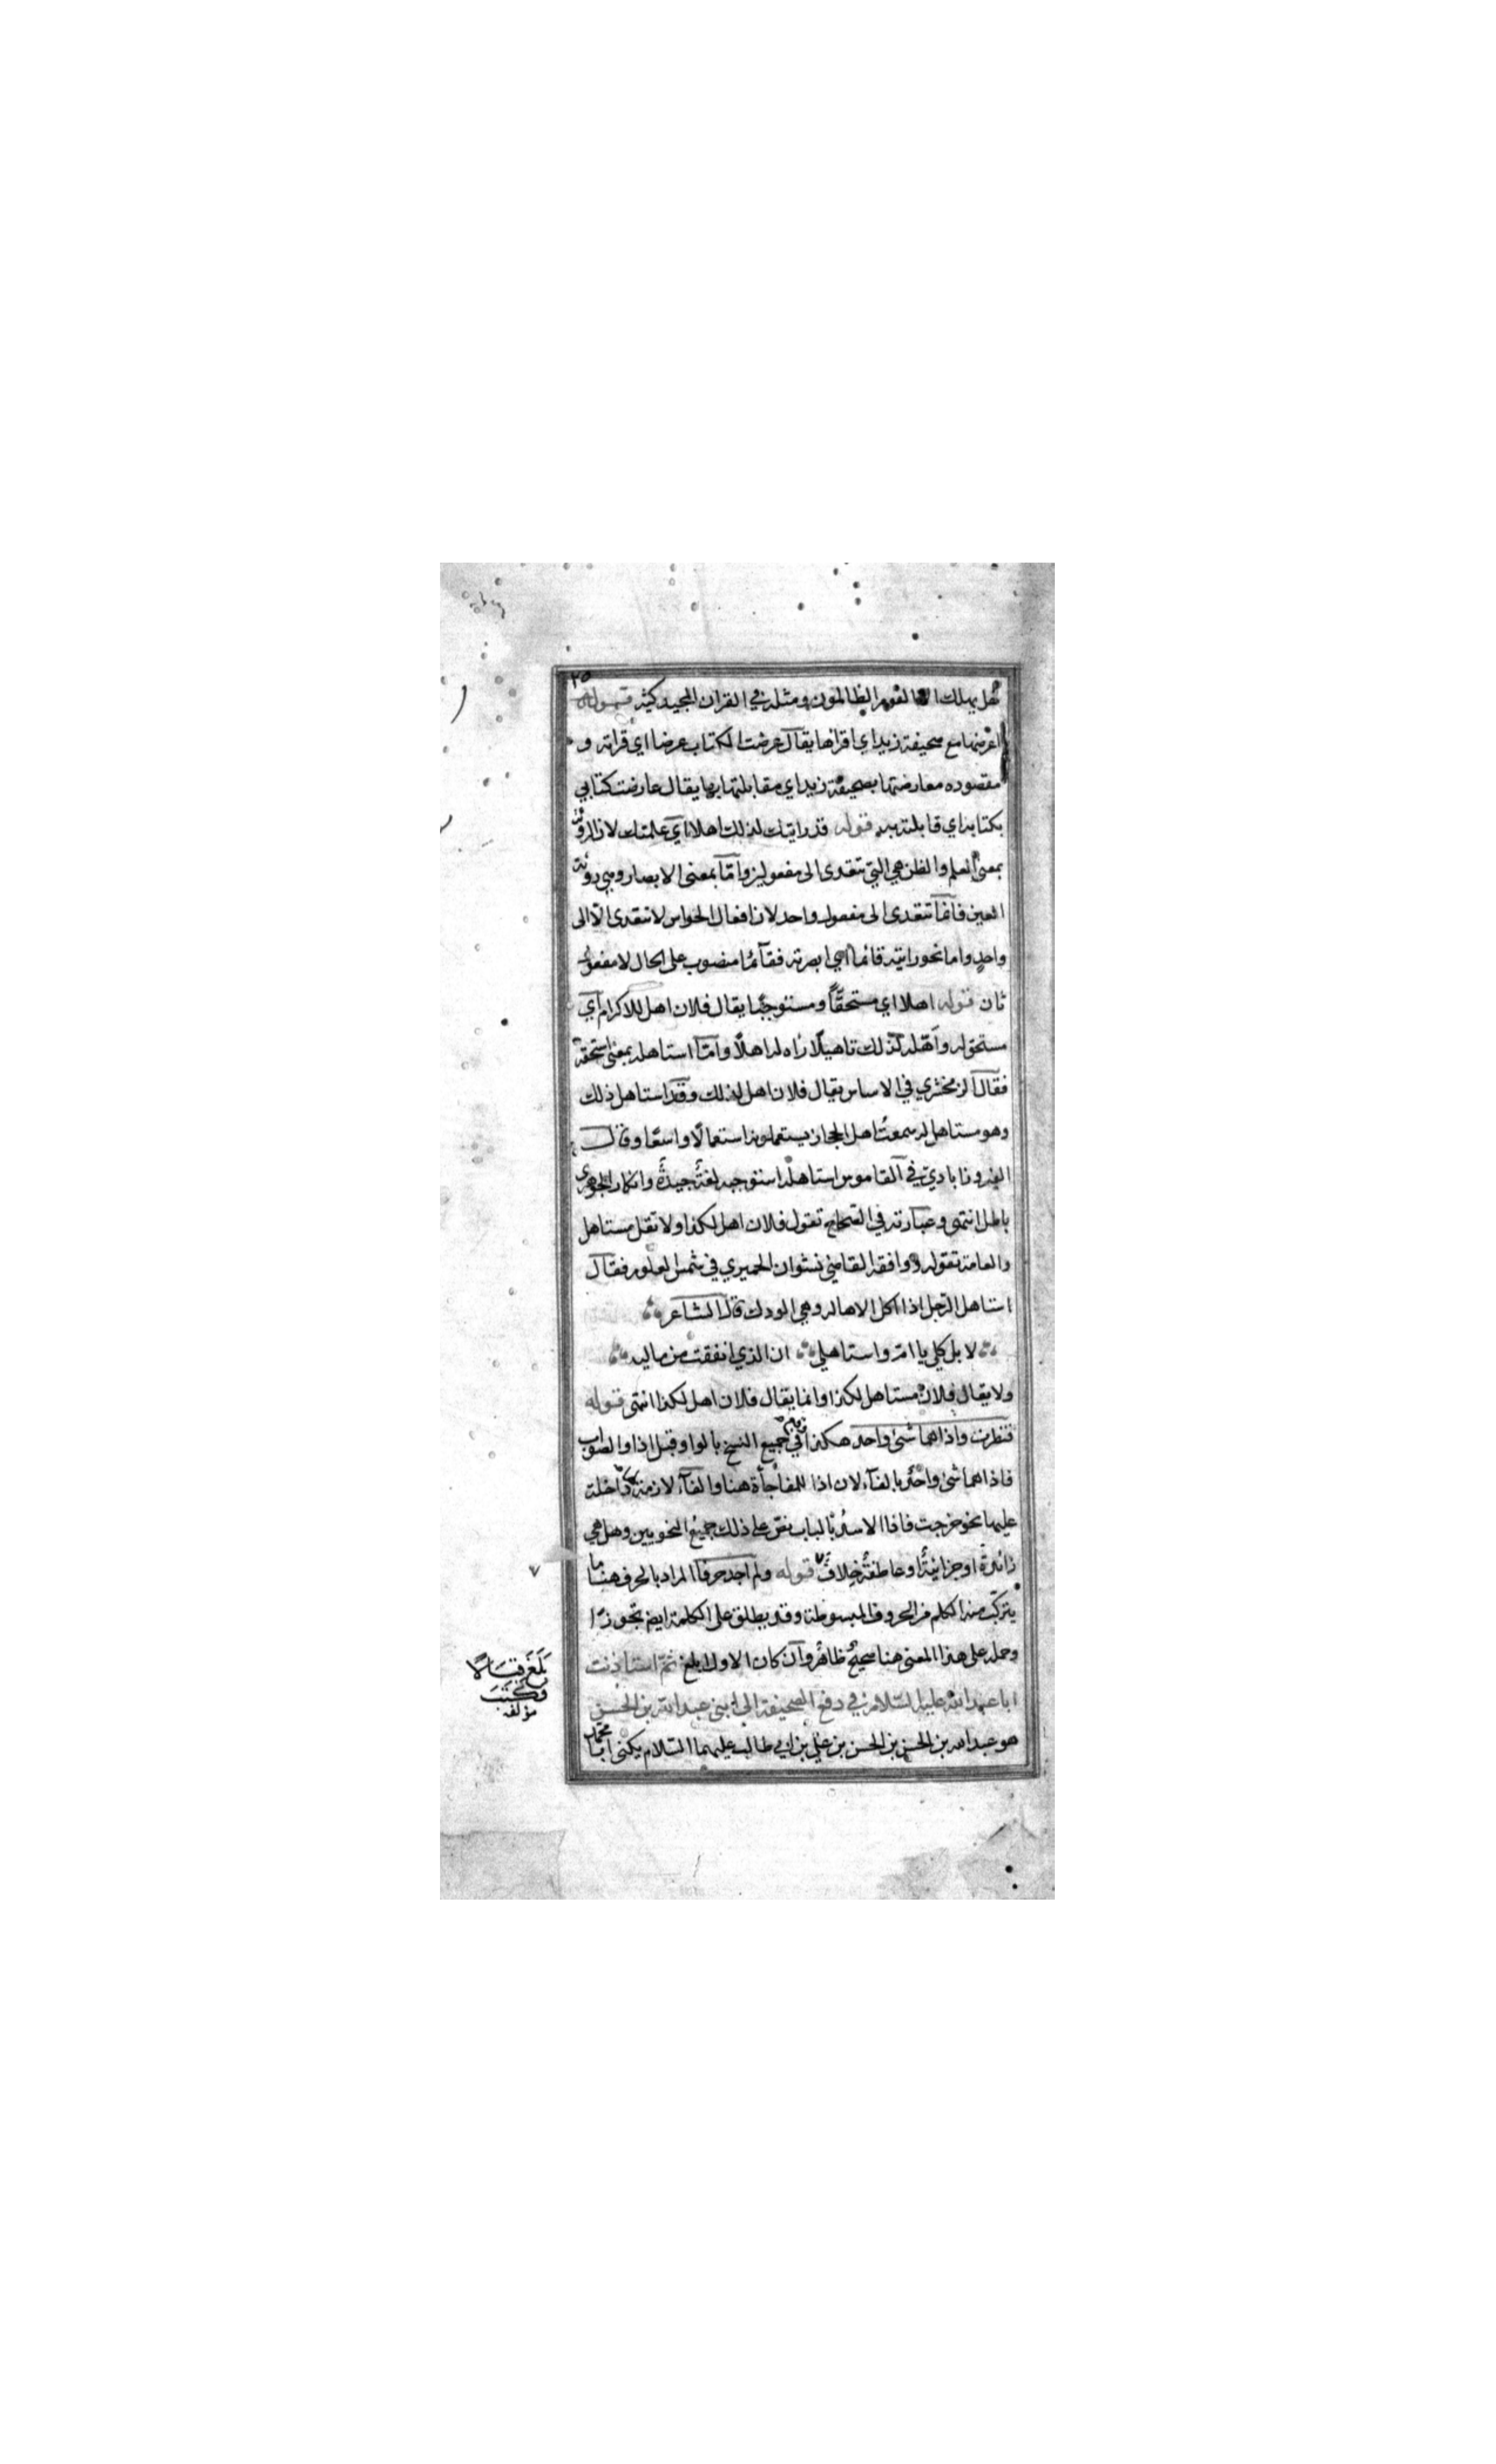 ٢٥
هل يهلك الا القوم الظالمون ومثله في القران المجيد كثير قوله
اعرضها مع صحيفة زيد اي اقراها يقال عرضت الكتاب عرضا اي قراته و
مقصوده معارضتها بصحيفة زيد اي مقابلتها بها يقال عارضت كتابي
بكتابه اي قابلته به قوله قد رايتك لذلك اهلا اي علمتك لان الروية
بمعنى العلم والظن هي التي تتعدى الى مفعولين وامّا بمعنى الابصار وهي روية
العين فانّما تتعدى الى مفعول واحد لان افعال الحواس لا تتعدى الّا الى
واحدٍ واما نحو رايته قائما اي ابصرته فقآئما منصوب على الحال لا مفعول
ثان قوله اهلا اي مستحقّاً ومستوجبًا يقال فلان اهل للاكرام اي
مستحق له واَهّله لذلك تاهيلًا رَاه له اهلاً وامّا استاهله بمعنى استحقه
فقال الزمخشري في الاساس يقال فلان اهل لذلك وقد استاهل ذلك
وهو مستاهل له سمعتُ اهل الحجاز يستعملونه استعمالًا واسعًا وقال
الفيروزابادي في القاموس استاهله استوجبه لغةٌ جيدةٌ وانكار الجوهري
باطل انتهى وعبارته في الصّحاح تقول فلان اهل لكذا ولا تقل مستاهل
والعامة تقوله ووافقه القاضي نشوان الحميري في شمس العلوم فقال
استاهل الرّجل اذا اكل الاهالة وهي الودك قال الشاعر
لا بل كلي يا امّ واستاهلي ان الذي انفقت من ماليه
ولا يقال فلانٌ مستاهل لكذا وانما يقال فلان اهل لكذا انتهى قوله
فنظرت واذا هما شئ واحد هكذا في جميع النسخ بالواو قبل اذا والصواب
فاذا هما شئ واحدٌ بالفآء لان اذا للمفاجأة هنا والفآء لازمة داخلة
عليها نحو خرجت فاذا الاسدُ بالباب نصّ على ذلك جميعُ النحويين وهل هي
زائدةٌ او جزائيةٌ او عاطفةٌ خِلافٌ قوله ولم اجد حرفًا المراد بالحرف هنا ما
يتركّب منه الكلم من الحروف المبسوطة وقد يطلق على الكلمة ايضا تجوزًا
وحمله على هذا المعنى هنا صحيحٌ ظاهرٌ وان كان الاول ابلغ ثمّ استاذنت
ابا عبد الله عليه السّلام في دفع الصحيفة الى ابني عبد الله بن الحسن
هو عبد الله بن الحسن بن الحسن بن علي بن ابي طالب عليهما السّلام يكنى ابا محمّد
بَلَغَ قِبَالًا
وكَتَبَ
مؤلفه